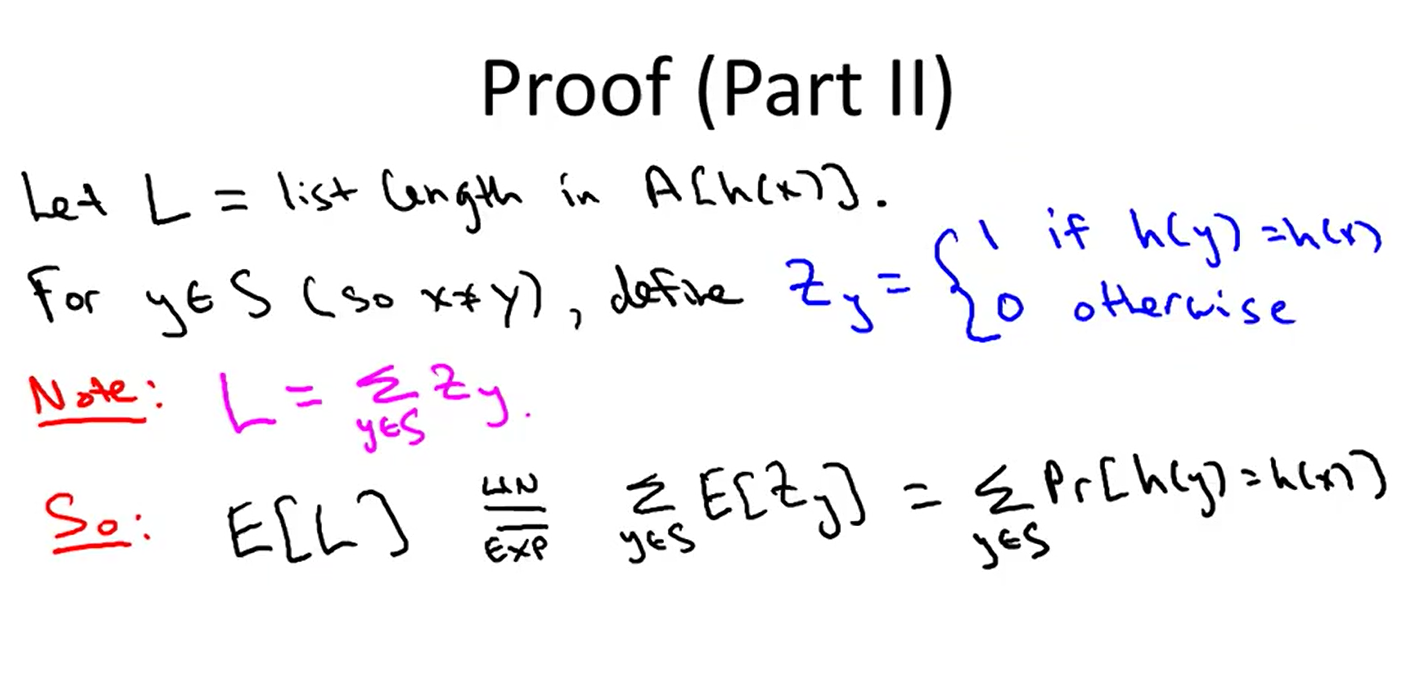 Proof (Part II)
Let L = list length in A[h(x)].
For y∈S (so x≠y), define Z_y = { 1 if h(y)=h(x)
0 otherwise
Note: L = Σ_{y∈S} Z_y.
So: E[L] =(LIN EXP) Σ_{y∈S} E[Z_y] = Σ_{y∈S} Pr[h(y)=h(x)]